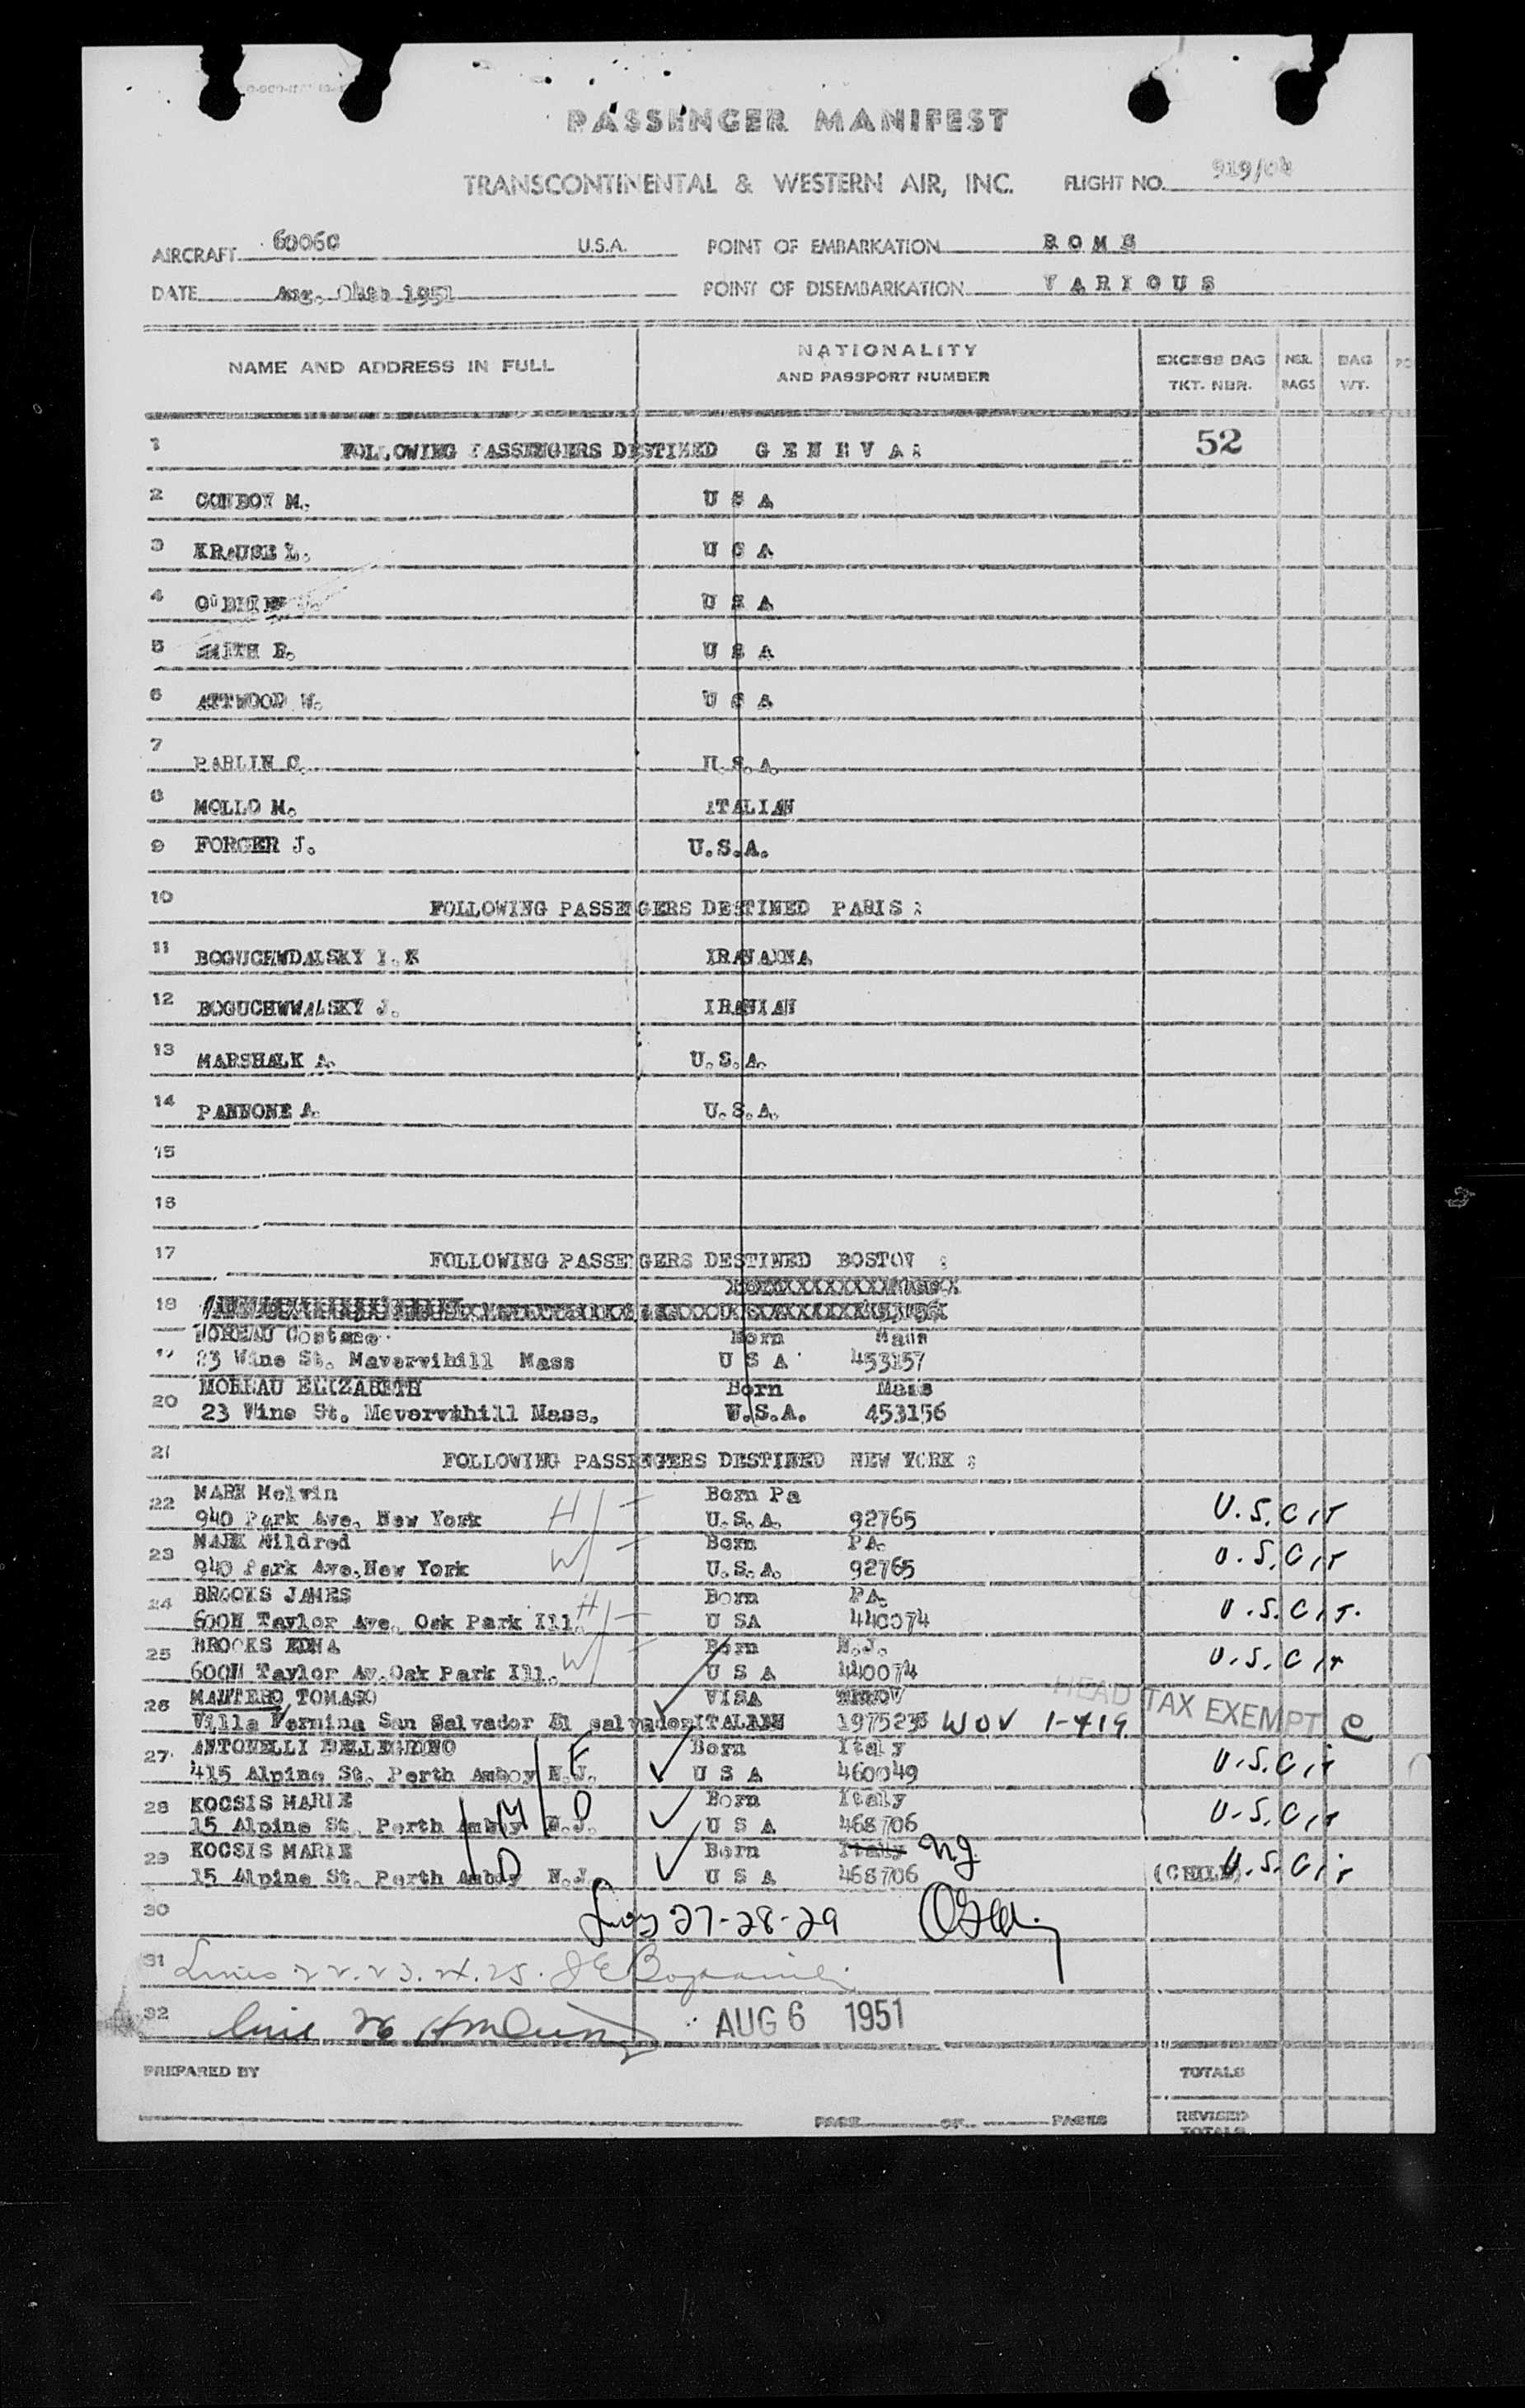 PASSENGER MANIFEST
TRANSCONTINENTAL & WESTERN AIR, INC. FLIGHT NO. 919/04
AIRCRAFT 6006C U.S.A. POINT OF EMBARKATION R O M E
DATE Aug. 1951 POINT OF DISEMBARKATION V A R I O U S
NAME AND ADDRESS IN FULL NATIONALITY AND PASSPORT NUMBER EXCESS BAG TKT. NBR. NBR. BAGS BAG WT.
1 FOLLOWING PASSENGERS DESTINED G E N E V A : 52
2 CONBOY M. U S A
3 KRAUSE L. U S A
4 U S A
5 SMITH R. U S A
6 ATTWOOD W. U S A
7 PABLIN C. U.S.A.
8 MOLLO M. ITALIAN
9 FORGER J. U.S.A.
10 FOLLOWING PASSENGERS DESTINED PARIS :
11 BOGUCHWDALSKY I.K
12 BOGUCHWWALSKY J. IRANIAN
13 MARSHALK A. U.S.A.
14 PANNONE A. U.S.A.
15
16
17 FOLLOWING PASSENGERS DESTINED BOSTON :
18
MOREAU Born Mass
19 23 Wine St. Mavervihill Mass U S A 453157
MOREAU ELIZABETH Born Mass
20 23 Wine St. Mevervihill Mass. U.S.A. 453156
21 FOLLOWING PASSENGERS DESTINED NEW YORK :
MARK Melvin H Born Pa
22 940 Park Ave. New York U.S.A. 92765 U.S. Cit
MARK Mildred W Born PA.
23 940 Park Ave. New York U.S.A. 92765 U.S. Cit
BROOKS JAMES H Born PA.
24 600N Taylor Ave. Oak Park Ill. U SA 440074 U.S. Cit.
BROOKS EDNA W Born N.J.
25 600N Taylor Av. Oak Park Ill. U S A 440074 U.S. Cit
26 MANTERO TOMASO VISA HEAD TAX EXEMPT
Villa Vernina San Salvador El salvador 197523 WOV 1-419 C
27 ANTONELLI PELLEGRINO F Born Italy
415 Alpine St. Perth Amboy N.J. U S A 460049 U.S. Cit
28 KOCSIS MARIE M D Born Italy
15 Alpine St. Perth Amboy N.J. U S A 468706 U.S. Cit
29 KOCSIS MARIE Born Italy NJ
15 Alpine St. Perth Amboy N.J. D U S A 468706 (CHILD) U.S. Cit
30 27-28-29
31 Lines 22.23.24.25.
32 26 AUG 6 1951
PREPARED BY TOTALS
PAGE OF PAGES REVISED TOTALS